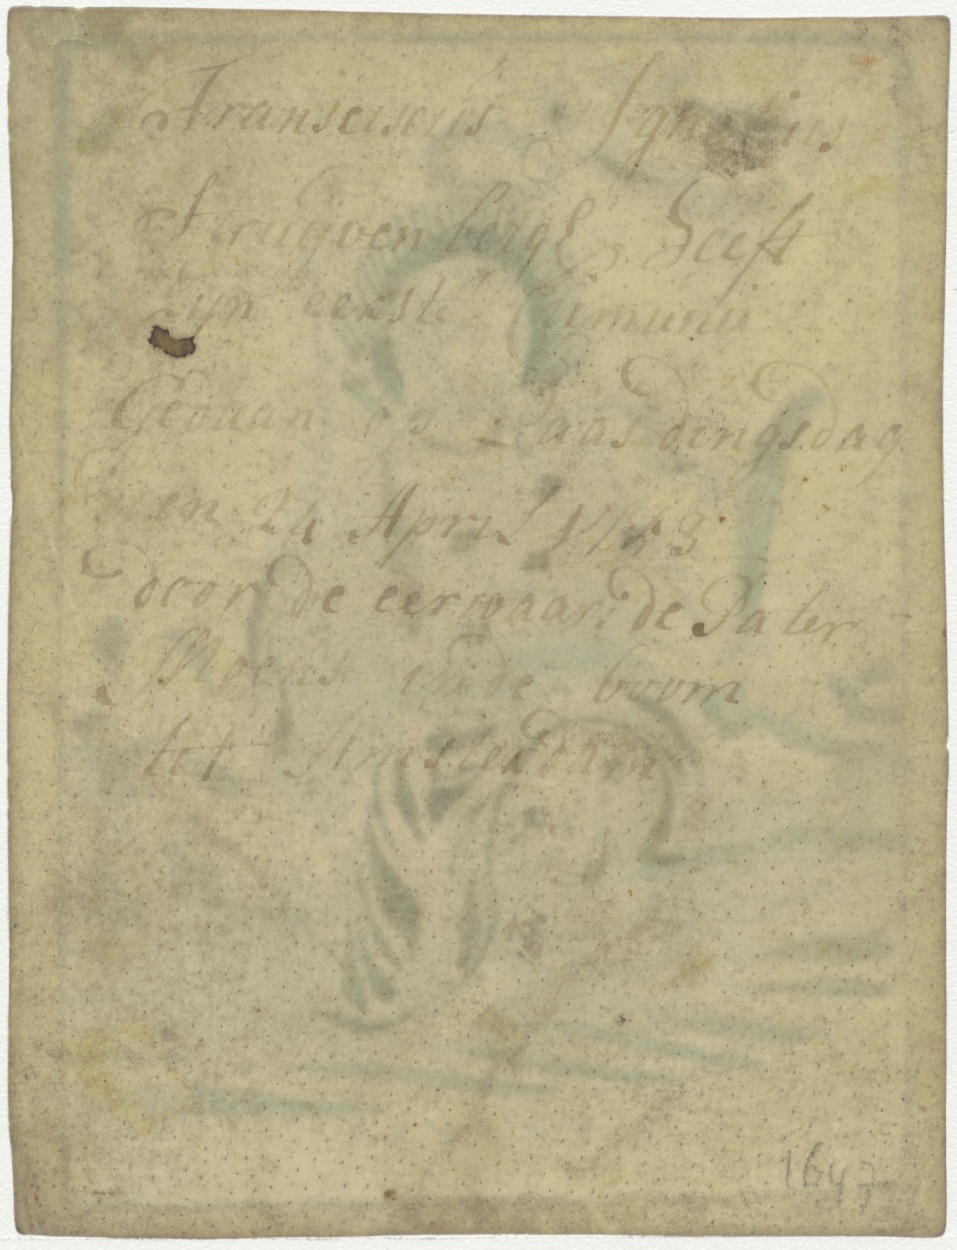 Fransciscus Ignatius
Kruijvenbergh Heeft
zijn eerste Comunie
Gedaan op Paas dingsdag
den 24 April 1753
door de eerwaarde Pater
Roest inde boom
tot Amsterdam
1647